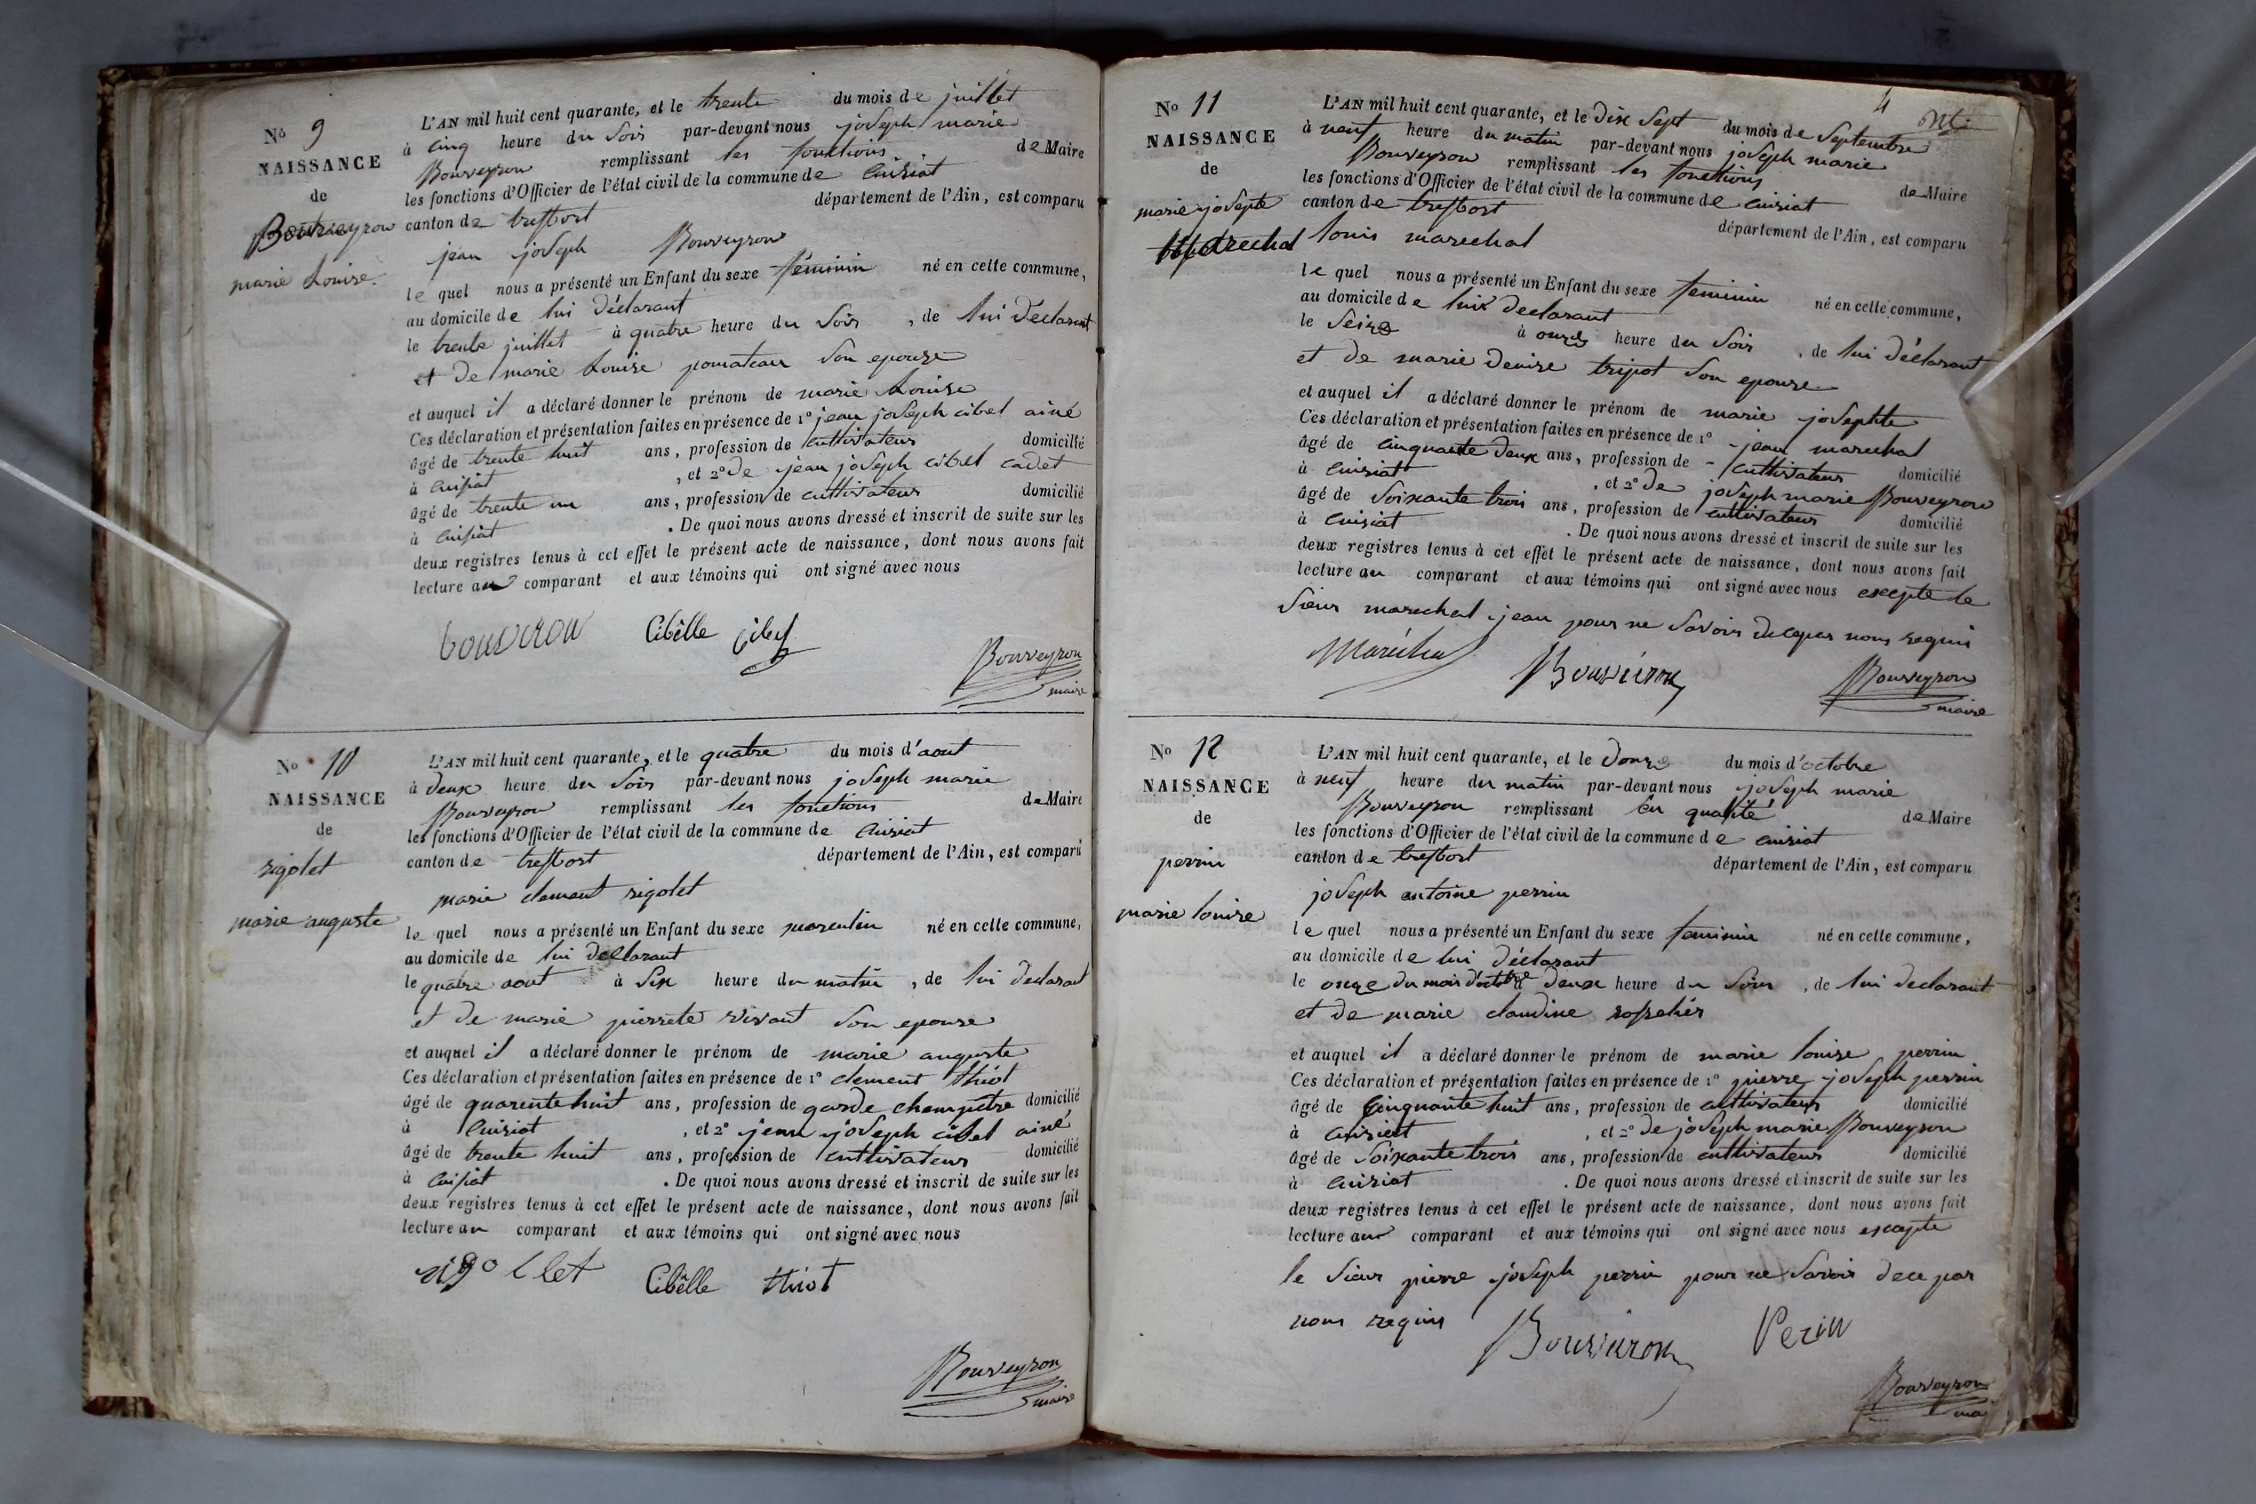 No 9
NAISSANCE
de
Bouveyron
marie Louise.
L'AN mil huit cent quarante, et le trente du mois de juillet
à cinq heure du soir par-devant nous joseph marie
Bouveyron remplissant les fonctions de Maire
les fonctions d'Officier de l'état civil de la commune de Cuisiat
canton de treffort département de l'Ain, est comparu
jean joseph Bouveyron
le quel nous a présenté un Enfant du sexe féminin né en cette commune,
au domicile de lui déclarant
le trente juillet à quatre heure du soir, de lui déclarant
et de marie Louise pomateau son epouse
et auquel il a déclaré donner le prénom de marie Louise
Ces déclaration et présentation faites en présence de 1° jean joseph cibel ainé
âgé de trente huit ans, profession de cultivateur domicilié
à Cuisiat, et 2° de jean joseph cibel cadet
âgé de trente un ans, profession de cultivateur domicilié
à Cuisiat. De quoi nous avons dressé et inscrit de suite sur les
deux registres tenus à cet effet le présent acte de naissance, dont nous avons fait
lecture au comparant et aux témoins qui ont signé avec nous
bouviron Cibèlle Cibel
Bouveyron
maire
No 10
NAISSANCE
de
rigolet
marie auguste
L'AN mil huit cent quarante, et le quatre du mois d'aout
à deux heure du soir par-devant nous joseph marie
Bouveyron remplissant les fonctions de Maire
les fonctions d'Officier de l'état civil de la commune de Cuisiat
canton de treffort département de l'Ain, est comparu
marie clement rigolet
le quel nous a présenté un Enfant du sexe masculin né en cette commune,
au domicile de lui declarant
le quatre aout à six heure du matin, de lui declarant
et de marie pierrete vivant son epouse
et auquel il a déclaré donner le prénom de marie auguste
Ces déclaration et présentation faites en présence de 1° clement thiot
âgé de quarente huit ans, profession de garde champetre domicilié
à Cuisiat, et 2° jean joseph cibel ainé
âgé de trente huit ans, profession de cultivateur domicilié
à Cuisiat. De quoi nous avons dressé et inscrit de suite sur les
deux registres tenus à cet effet le présent acte de naissance, dont nous avons fait
lecture au comparant et aux témoins qui ont signé avec nous
rigollet Cibèlle thiot
Bouveyron
maire
4
No 11
NAISSANCE
de
marie josephte
marechal
L'AN mil huit cent quarante, et le dix sept du mois de Septembre
à neuf heure du matin par-devant nous joseph marie
Bouveyron remplissant les fonctions de Maire
les fonctions d'Officier de l'état civil de la commune de cuisiat
canton de treffort département de l'Ain, est comparu
louis marechal
le quel nous a présenté un Enfant du sexe feminin né en cette commune,
au domicile de lui declarant
le seize à onze heure du soir, de lui déclarant
et de marie denise tripot son epouse
et auquel il a déclaré donner le prénom de marie josephte
Ces déclaration et présentation faites en présence de 1° jean marechal
âgé de cinquante deux ans, profession de cultivateur domicilié
à Cuisiat, et 2° de joseph marie Bouveyron
âgé de soixante trois ans, profession de cultivateur domicilié
à Cuisiat. De quoi nous avons dressé et inscrit de suite sur les
deux registres tenus à cet effet le présent acte de naissance, dont nous avons fait
lecture au comparant et aux témoins qui ont signé avec nous excepte le
sieur marechal jean pour ne savoir de ce par nous requi
Maréchal Bouviron
Bouveyron
maire
No 12
NAISSANCE
de
perrin
marie louise
L'AN mil huit cent quarante, et le douze du mois d'octobre
à neuf heure du matin par-devant nous joseph marie
Bouveyron remplissant en qualité de Maire
les fonctions d'Officier de l'état civil de la commune de cuisiat
canton de treffort département de l'Ain, est comparu
joseph antoine perrin
le quel nous a présenté un Enfant du sexe feminin né en cette commune,
au domicile de lui déclarant
le onze du mois d'octobre à deux heure du soir, de lui declarant
et de marie claudine
et auquel il a déclaré donner le prénom de marie louise perrin
Ces déclaration et présentation faites en présence de 1° pierre joseph perrin
âgé de cinquante huit ans, profession de cultivateur domicilié
à cuisiat, et 2° de joseph marie Bouveyron
âgé de soixante trois ans, profession de cultivateur domicilié
à Cuisiat. De quoi nous avons dressé et inscrit de suite sur les
deux registres tenus à cet effet le présent acte de naissance, dont nous avons fait
lecture au comparant et aux témoins qui ont signé avec nous excepte
le sieur pierre joseph perrin pour ne savoir de ce par
nous requis
Bouviron Perin
Bouveyron